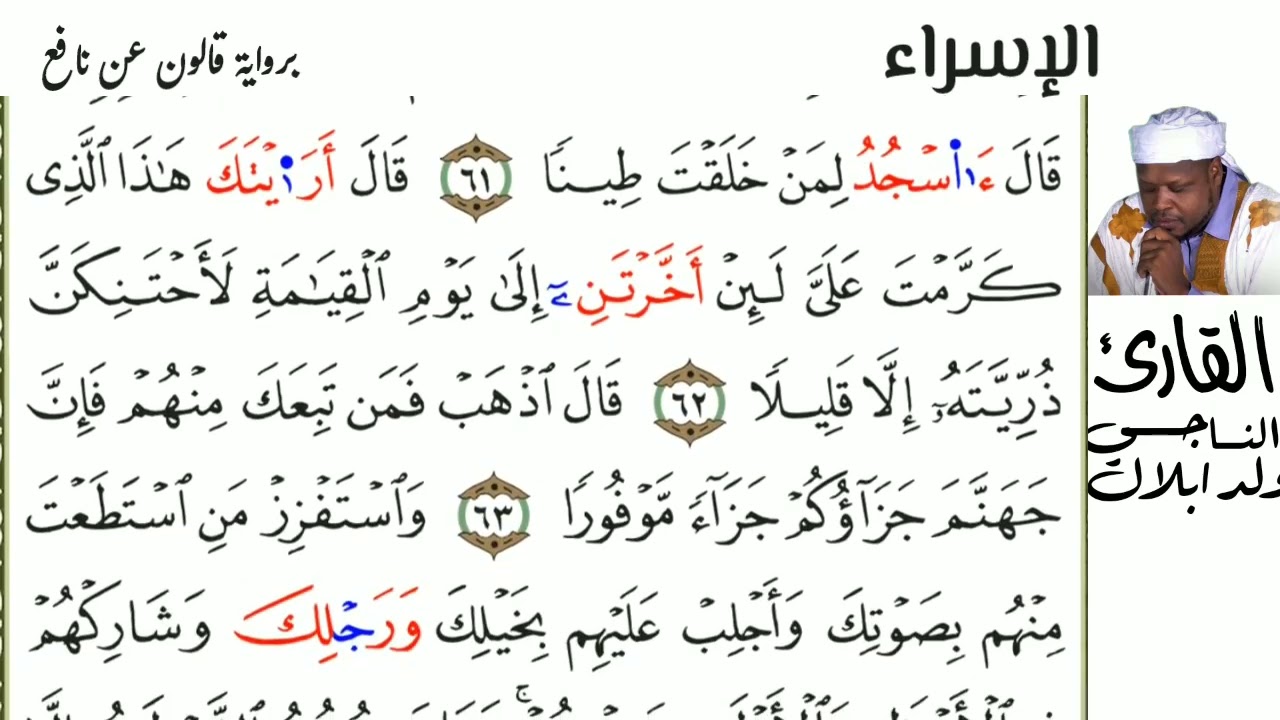 الإسراء
برواية قالون عن نافع
قَالَ ءَا۬سْجُدُ لِمَنْ خَلَقْتَ طِيناٗ ٦١ قَالَ أَرَٰٓيْتَكَ هَٰذَا اَ۬لَّذِے
كَرَّمْتَ عَلَيَّ لَئِنْ أَخَّرْتَنِۦٓ إِلَىٰ يَوْمِ اِ۬لْقِيَٰمَةِ لَأَحْتَنِكَنَّ
ذُرِّيَّتَهُۥٓ إِلَّا قَلِيلاٗ ٦٢ قَالَ اَ۪ذْهَبْ فَمَن تَبِعَكَ مِنْهُمْ فَإِنَّ
جَهَنَّمَ جَزَآؤُكُمْ جَزَآءٗ مَّوْفُوراٗ ٦٣ وَاسْتَفْزِزْ مَنِ اِ۪سْتَطَعْتَ
مِنْهُم بِصَوْتِكَ وَأَجْلِبْ عَلَيْهِم بِخَيْلِكَ وَرَجْلِكَ وَشَارِكْهُمْ
القارئ
الناجي
ولد ابلال